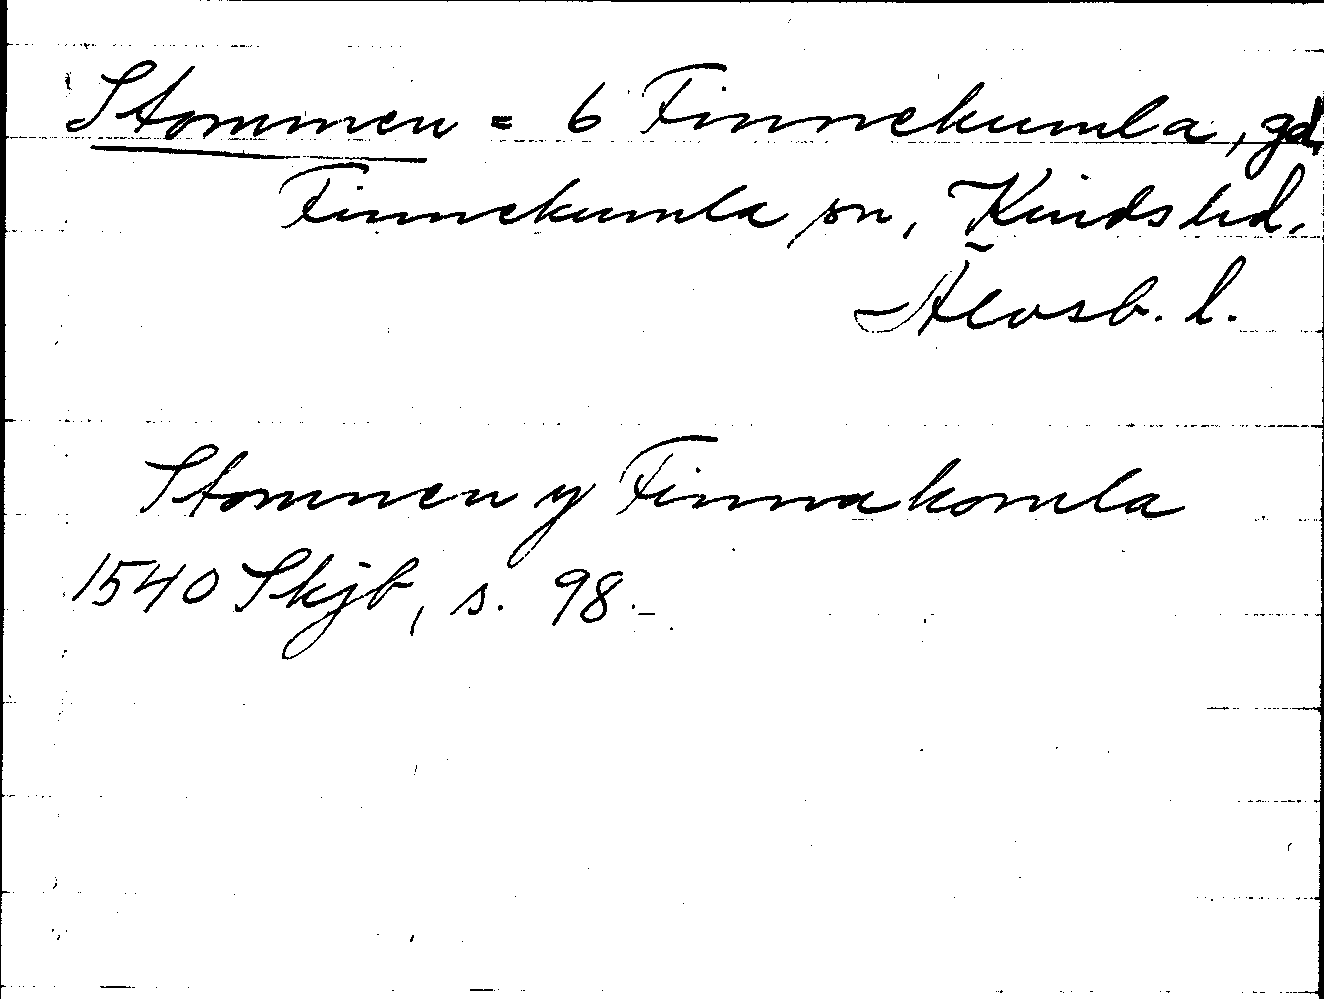 Stommen = 6 Finnekumla, gd,
Finnekumla sn, Kinds hd.
Älvsb. l.
Stommen y Finnakomla
1540 Skjb, s. 98.